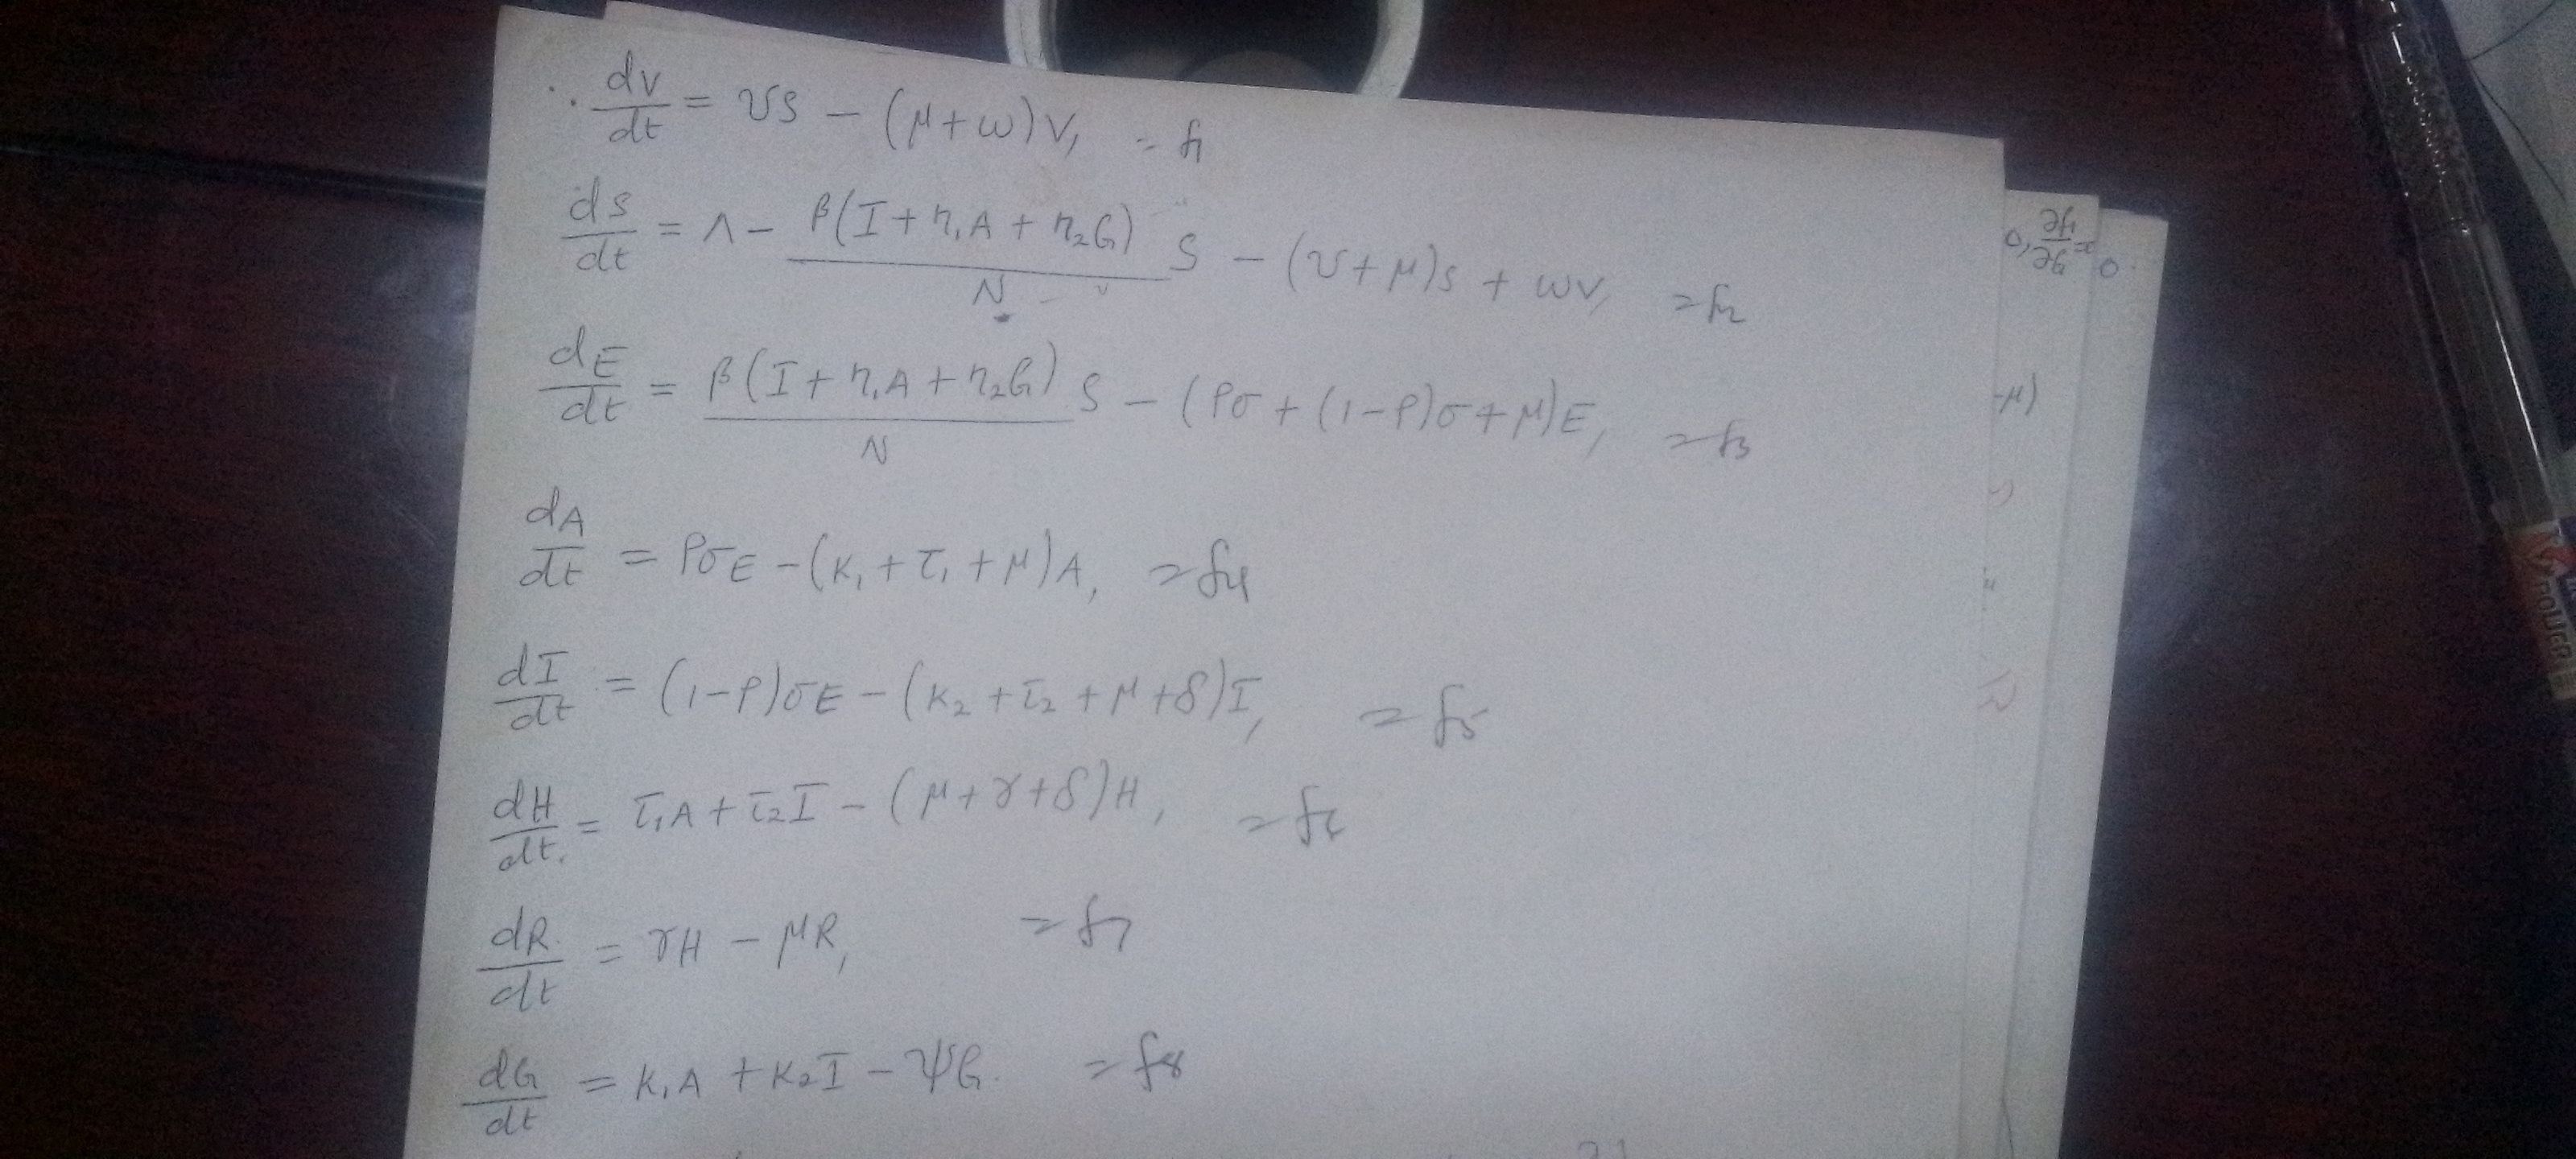 ∴ dV/dt = υS − (μ+ω)V, = f1
dS/dt = Λ − β(I + η₁A + η₂G)/N S − (υ+μ)S + ωV, = f2
dE/dt = β(I + η₁A + η₂G)/N S − (ρσ + (1−ρ)σ + μ)E, = f3
dA/dt = ρσE − (κ₁ + τ₁ + μ)A, = f4
dI/dt = (1−ρ)σE − (κ₂ + τ₂ + μ + δ)I, = f5
dH/dt = τ₁A + τ₂I − (μ + γ + δ)H, = f6
dR/dt = γH − μR, = f7
dG/dt = κ₁A + κ₂I − ψG. = f8
0, ∂f1/∂G = 0
-μ)